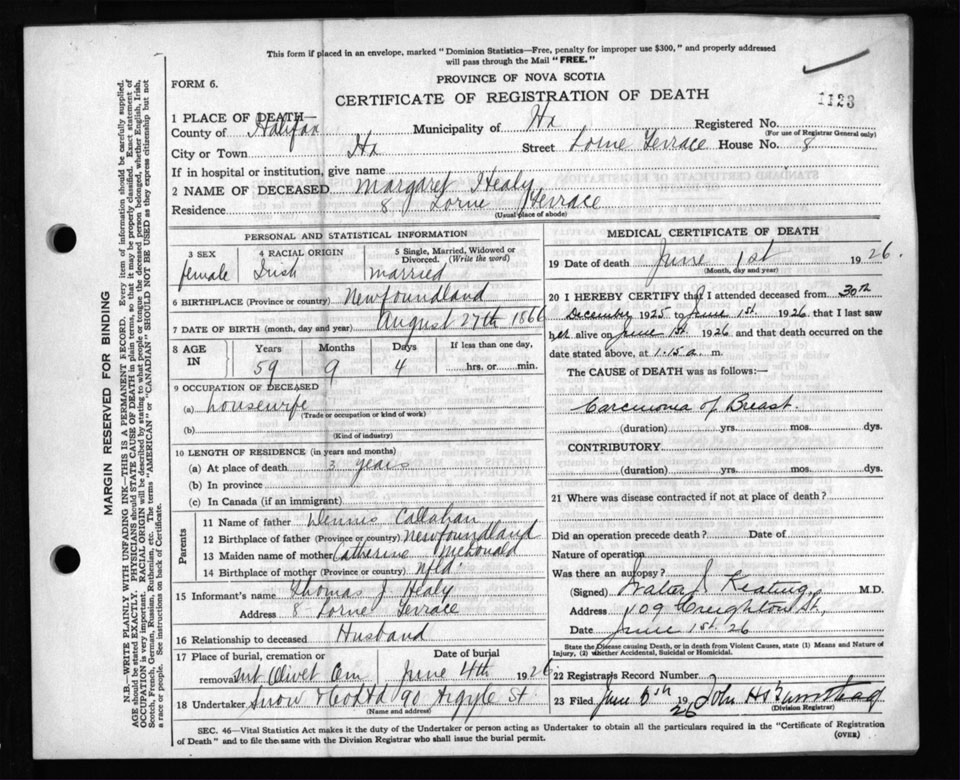 This form if placed in an envelope, marked "Dominion Statistics—Free, penalty for improper use $300," and properly addressed
will pass through the Mail "FREE."
FORM 6.
PROVINCE OF NOVA SCOTIA
CERTIFICATE OF REGISTRATION OF DEATH
1123
1 PLACE OF DEATH—
County of Halifax Municipality of Hx Registered No.
(For use of Registrar General only)
City or Town Hx Street Lorne Terrace House No. 8
If in hospital or institution, give name
2 NAME OF DECEASED Margaret Healy
Residence 8 Lorne Terrace
(Usual place of abode)
PERSONAL AND STATISTICAL INFORMATION
3 SEX 4 RACIAL ORIGIN 5 Single, Married, Widowed or Divorced. (Write the word)
female Irish married
6 BIRTHPLACE (Province or country) Newfoundland
7 DATE OF BIRTH (month, day and year) August 27th 1866
8 AGE IN Years Months Days If less than one day,
59 9 4 hrs. or min.
9 OCCUPATION OF DECEASED
(a) housewife
(Trade or occupation or kind of work)
(b)
(Kind of industry)
10 LENGTH OF RESIDENCE (in years and months)
(a) At place of death 3 years
(b) In province
(c) In Canada (if an immigrant)
Parents
11 Name of father Dennis Callahan
12 Birthplace of father (Province or country) Newfoundland
13 Maiden name of mother Catherine McDonald
14 Birthplace of mother (Province or country) Nfld
15 Informant's name Thomas J Healy
Address 8 Lorne Terrace
16 Relationship to deceased Husband
17 Place of burial, cremation or removal Date of burial
Mt Olivet Cem June 4th 1926
18 Undertaker Snow & Co Ltd 90 Argyle St
(Name and address)
MEDICAL CERTIFICATE OF DEATH
19 Date of death June 1st 1926.
(Month, day and year)
20 I HEREBY CERTIFY that I attended deceased from 30th
December 1925 to June 1st. 1926 that I last saw
her alive on June 1st. 1926 and that death occurred on the
date stated above, at 1.15 a. m.
The CAUSE of DEATH was as follows:—
Carcinoma of Breast.
(duration) yrs. mos. dys.
CONTRIBUTORY
(duration) yrs. mos. dys.
21 Where was disease contracted if not at place of death?
Did an operation precede death? Date of
Nature of operation
Was there an autopsy?
(Signed) Walter J Keating M.D.
Address 109 Creighton St,
Date June 1st 26
State the Disease causing Death, or in death from Violent Causes, state (1) Means and Nature of
Injury, (2) whether Accidental, Suicidal or Homicidal.
22 Registrars Record Number
23 Filed June 5th 1926 John H
(Division Registrar)
SEC. 46—Vital Statistics Act makes it the duty of the Undertaker or person acting as Undertaker to obtain all the particulars required in the "Certificate of Registration
of Death" and to file the same with the Division Registrar who shall issue the burial permit.
(OVER)
MARGIN RESERVED FOR BINDING
N.B.—WRITE PLAINLY WITH UNFADING INK—THIS IS A PERMANENT RECORD. Every item of information should be carefully supplied.
AGE should be stated EXACTLY. PHYSICIANS should STATE CAUSE OF DEATH in plain terms, so that it may be properly classified. Exact statement of
OCCUPATION is very important. RACIAL ORIGIN will be described by stating to what people or tongue the deceased person belonged, whether English, Irish,
Scotch, French, German, Russian, Ruthenian, etc. The terms "AMERICAN" or "CANADIAN" SHOULD NOT BE USED as they express citizenship but not
a race or people. See instructions on back of Certificate.